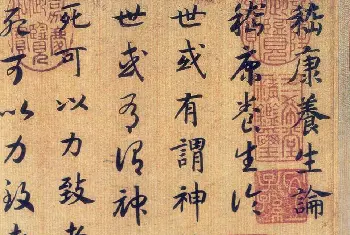 嵇康養生論
嵇康養生論
世或有謂神
世或有謂神
死可以力致者
死可以力致者